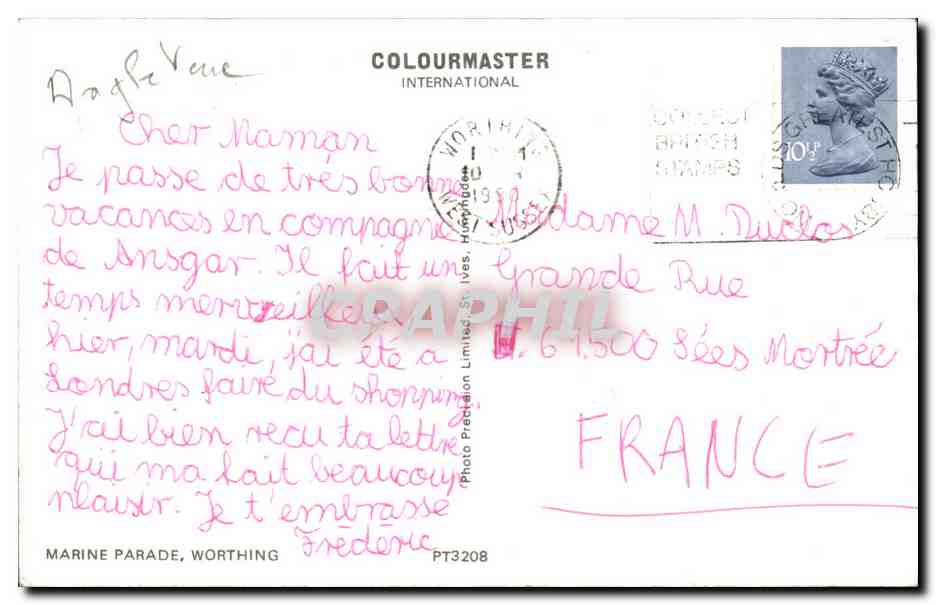 COLOURMASTER
INTERNATIONAL
Cher Maman
Je passe de très bonne
vacances en compagnie
de Ansgar. Il fait un
temps merveilleux
hier, mardi, j'ai été a
Londres faire du shopping.
J'ai bien reçu ta lettre
qui ma fait beaucoup
plaisir. Je t'embrasse
Fréderic
MARINE PARADE, WORTHING
PT3208
Photo Precision Limited, St. Ives, Huntingdon
WORTHING
WEST SUSSEX
COLLECT
BRITISH
STAMPS
10½P
Madame M. Duclos
Grande Rue
61.500 Sées Mortrée
FRANCE
CPAPHIL